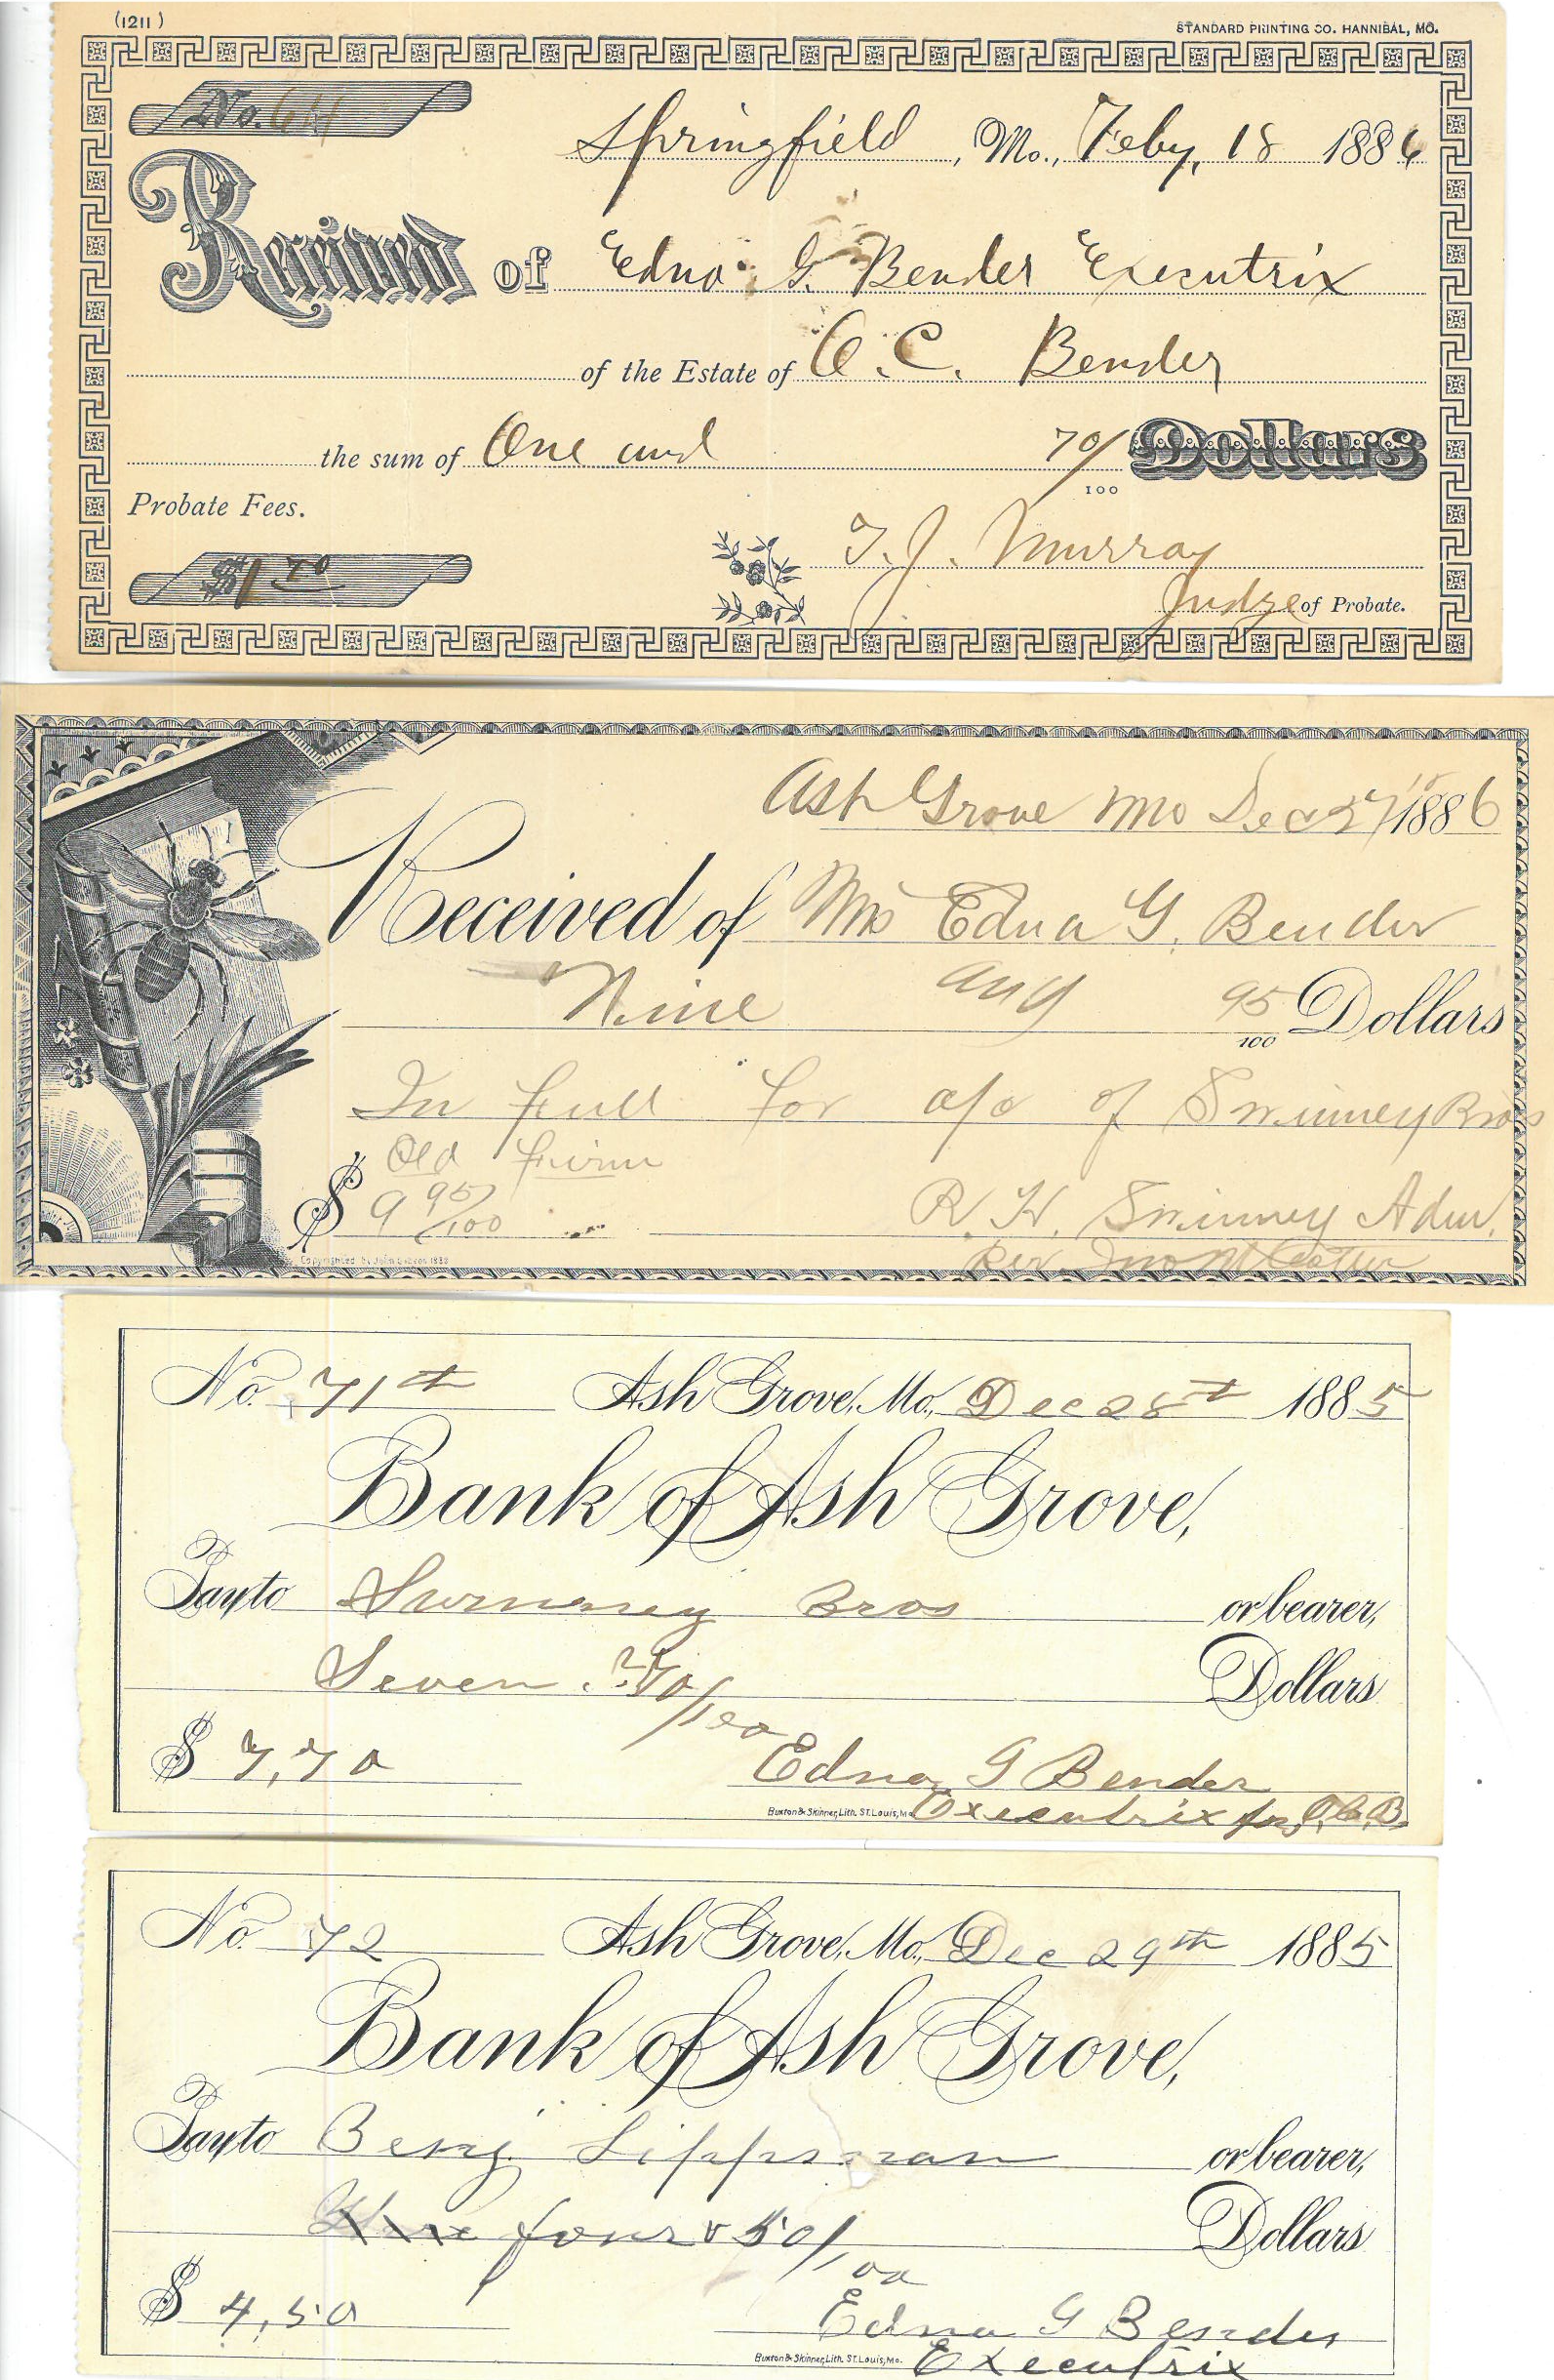 (1211) STANDARD PRINTING CO. HANNIBAL, MO.
No. 64
Springfield, Mo., Feby, 18 1886
Received of Edna G. Bender Executrix
of the Estate of O. C. Bender
the sum of One and 70/100 Dollars
Probate Fees.
$1 70 T. J. Murray
Judge of Probate.
Ash Grove Mo Dec 1886
Received of Mrs Edna G. Bender
Nine and 95/100 Dollars
In full for a/c of Swinney Bros
Old firm
$ 9 95/100 R. H. Swinney Adm.
No. 71st Ash Grove, Mo., Dec 28th 1885
Bank of Ash Grove,
Pay to Swinney Bros or bearer,
Seven 70/100 Dollars
$ 7,70 Edna G Bender
Buxton & Skinner, Lith. St. Louis, Mo. Executrix for O. C. B.
No. 72 Ash Grove, Mo., Dec 29th 1885
Bank of Ash Grove,
Pay to Benj. Lippman or bearer,
four & 50/100 Dollars
$ 4,50 Edna G Bender
Buxton & Skinner, Lith. St. Louis, Mo. Executrix